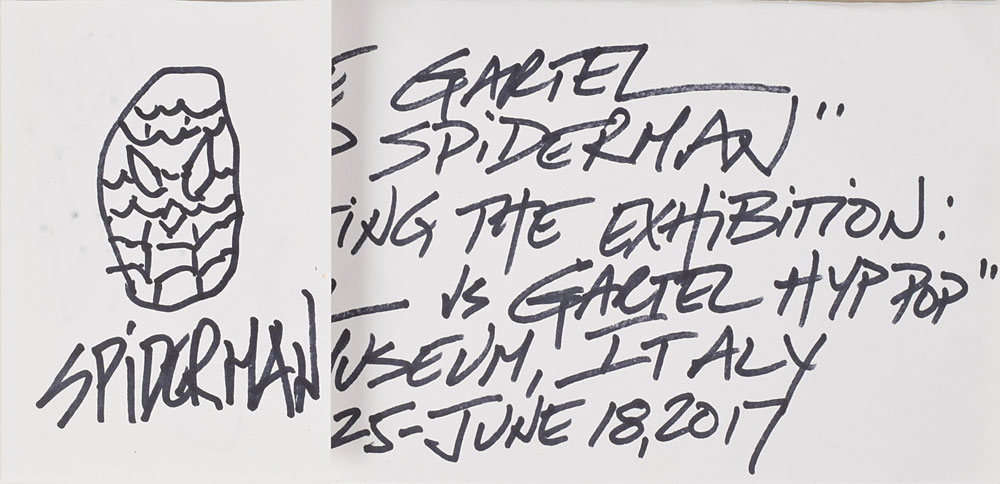 SPIDERMAN
E GARTEL
SPIDERMAN"
ING THE EXHIBITION:
VS GARTEL HYP POP"
USEUM, ITALY
25-JUNE 18, 2017